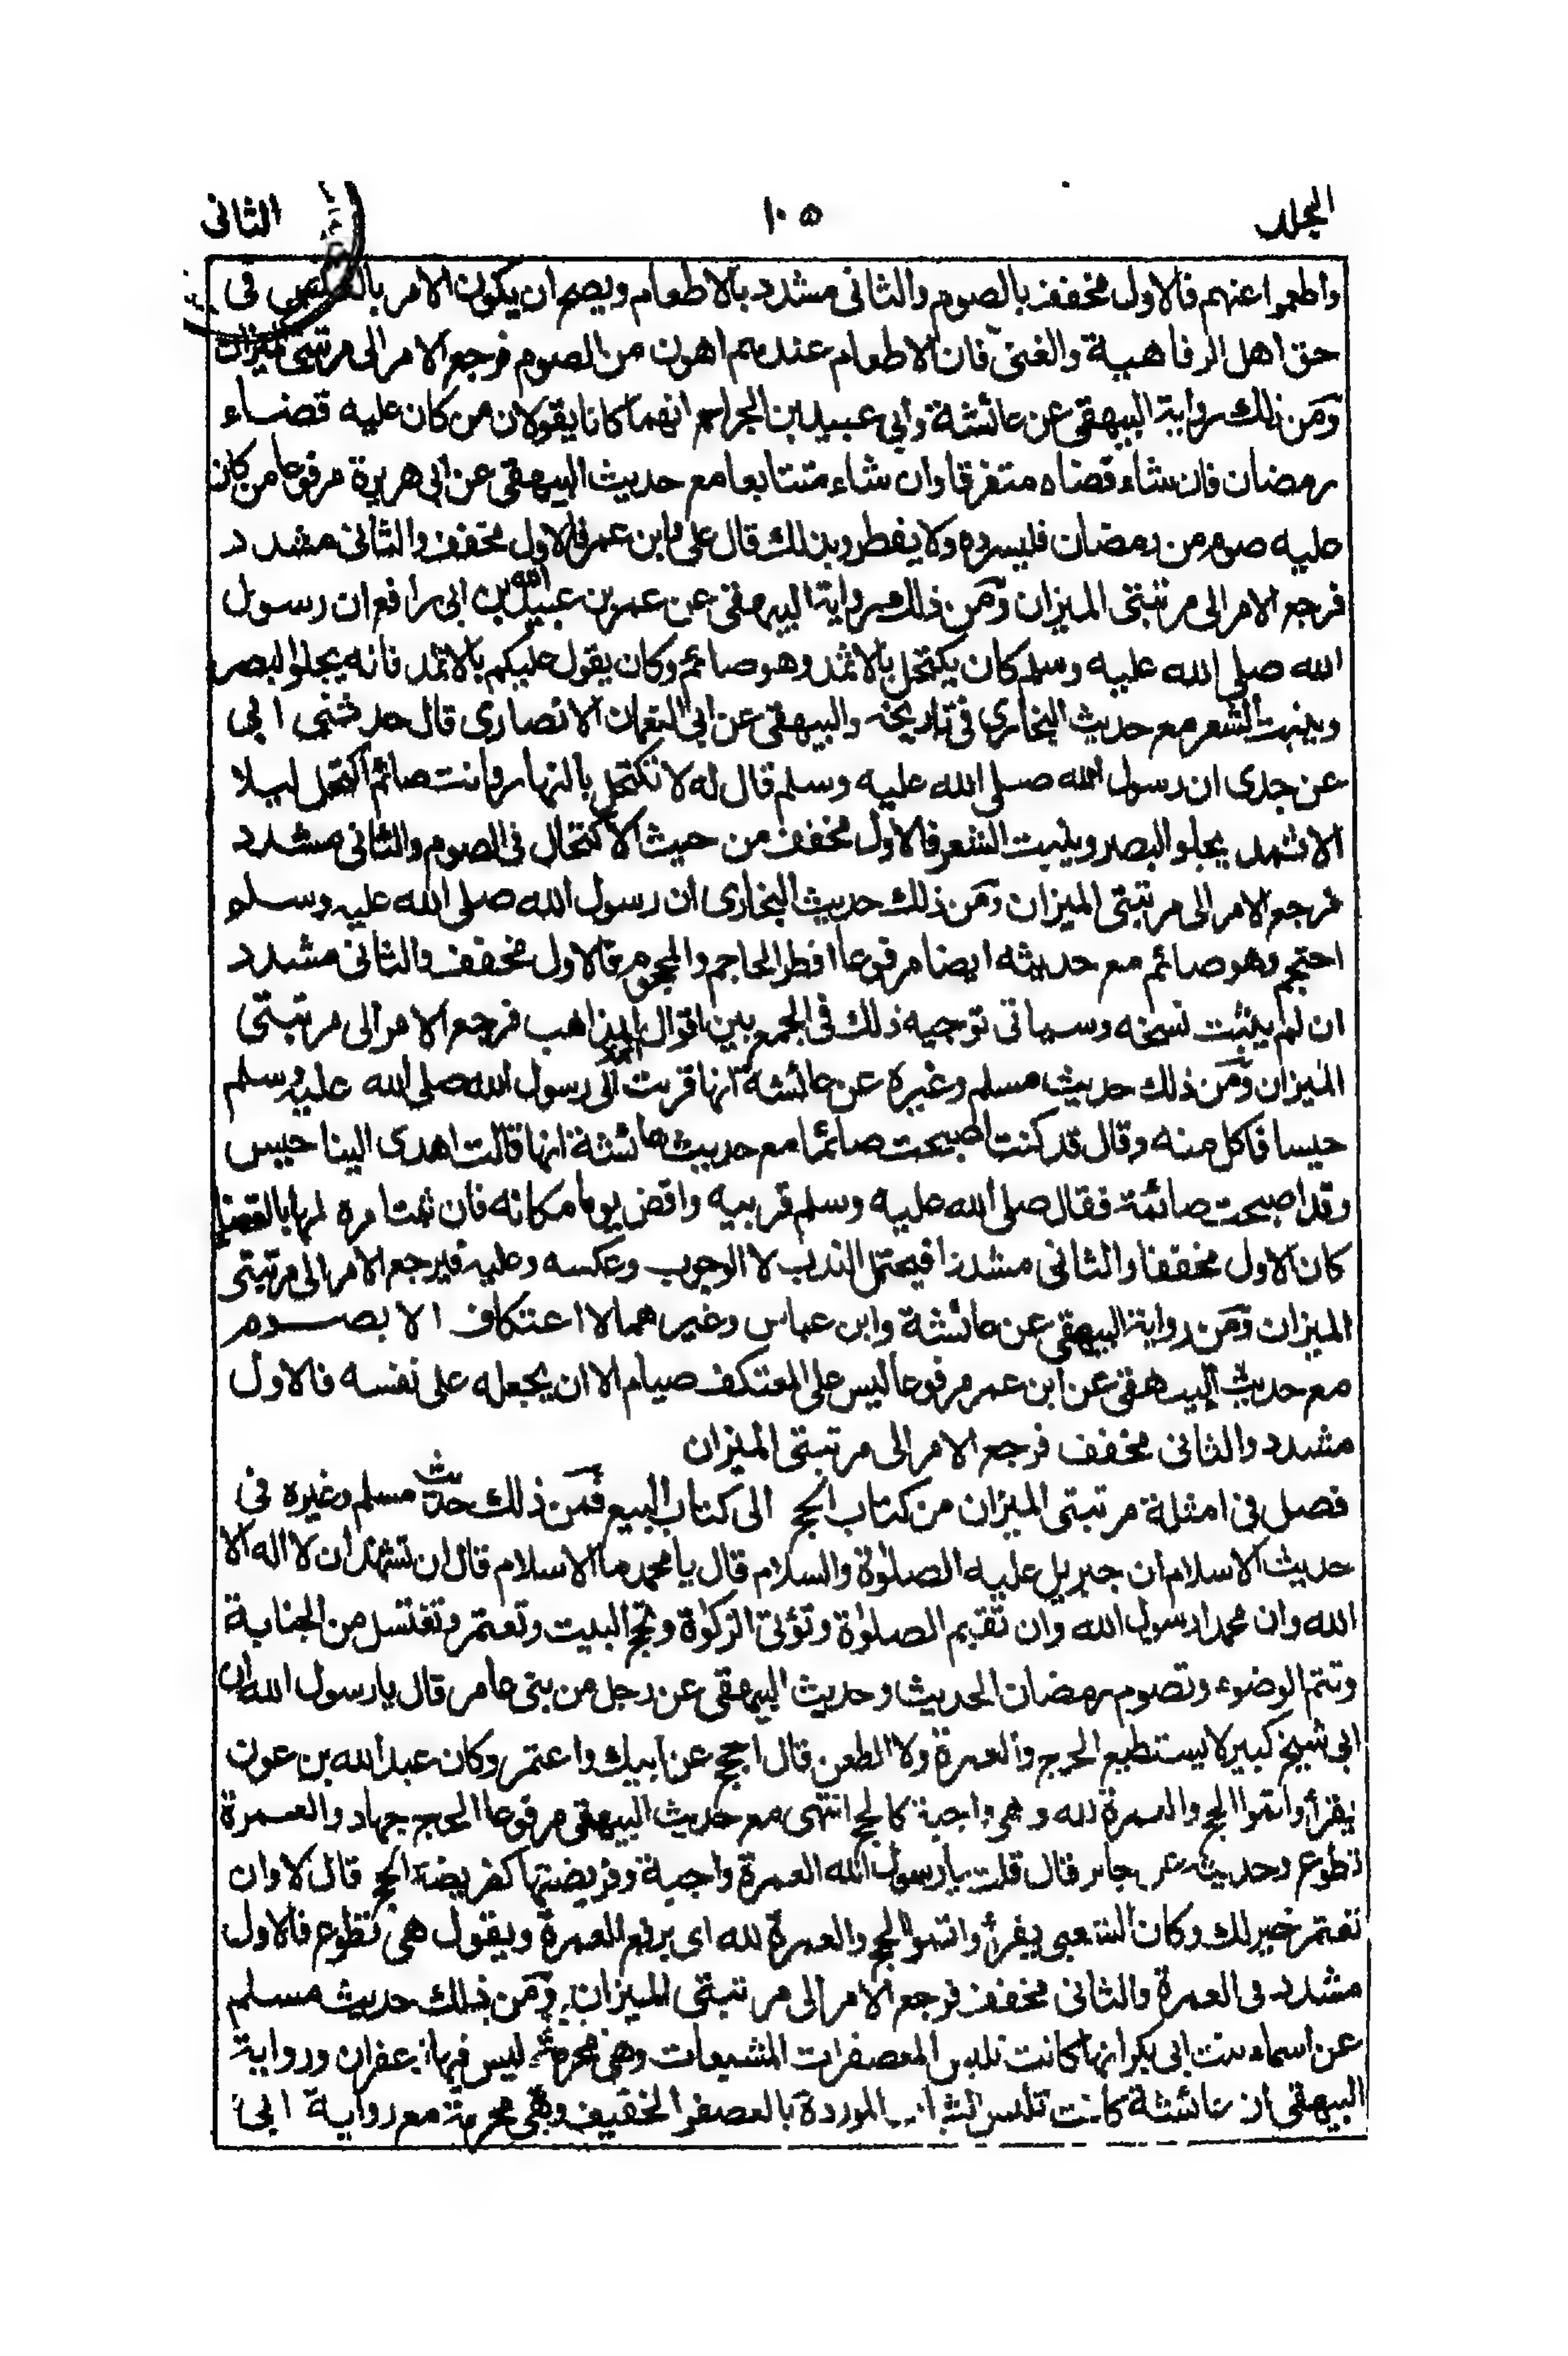 المجلد
١٠٥
الثانى
واطعموا عنهم فالاول مخفف بالصوم والثانى مشدد بالاطعام ويصح ان يكون الامر فى
حق اهل الرفاهية والغنى فان الاطعام عندهم اهون من الصوم فرجع الامر الى مرتبتى الميزان
ومن ذلك رواية البيهقى عن عائشة وأبي عبيد بن الجراح انهما كانا يقولان من كان عليه قضاء
رمضان فان شاء قضاه متفرقا وان شاء متتابعا مع حديث البيهقى عن ابى هريرة مرفوعا من كان
عليه صوم من رمضان فليسرده ولا يفطر وبذلك قال على وابن عمر فالاول مخفف والثانى مشدد
فرجع الامر الى مرتبتى الميزان ومن ذلك رواية البيهقى عن عمر بن عبيد الله بن ابى رافع ان رسول
الله صلى الله عليه وسلم كان يكتحل بالاثمد وهو صائم وكان يقول عليكم بالاثمد فانه يجلوا البصر
وينبت الشعر مع حديث البخاري فى تاريخه والبيهقى عن ابى النعمان الانصارى قال حدثنى ابى
عن جدى ان رسول الله صلى الله عليه وسلم قال له لا تكتحل بالنهار وانت صائم اكتحل ليلا
الاثمد يجلو البصر وينبت الشعر فالاول مخفف من حيث الاكتحال فى الصوم والثانى مشدد
فرجع الامر الى مرتبتى الميزان ومن ذلك حديث البخارى ان رسول الله صلى الله عليه وسلم
احتجم وهو صائم مع حديثه ايضا مرفوعا افطر الحاجم والمحجوم فالاول مخفف والثانى مشدد
ان لم يثبت نسخه وسياتى توجيه ذلك فى الجمع بين اقوال المذاهب فرجع الامر الى مرتبتى
الميزان ومن ذلك حديث مسلم وغيره عن عائشة انها قربت الى رسول الله صلى الله عليه وسلم
حيسا فاكل منه وقال قد كنت اصبحت صائما مع حديث عائشة انها قالت اهدى الينا حيس
وقد اصبحت صائمة فقال صلى الله عليه وسلم قربيه واقضى يوما مكانه فان ثبت امره لها بالقضاء
كان الاول مخففا والثانى مشددا فيحتمل الندب لا الوجوب وعكسه وعليه فيرجع الامر الى مرتبتى
الميزان ومن رواية البيهقى عن عائشة وابن عباس وغيرهما لا اعتكاف الا بصوم
مع حديث البيهقى عن ابن عمر مرفوعا ليس على المعتكف صيام الا ان يجعله على نفسه فالاول
مشدد والثانى مخفف فرجع الامر الى مرتبتى الميزان
فصل فى امثلة مرتبتى الميزان من كتاب الحج الى كتاب البيع فمن ذلك حديث مسلم وغيره فى
حديث الاسلام ان جبريل عليه الصلوة والسلام قال يا محمد ما الاسلام قال ان تشهد ان لا اله الا
الله وان محمدا رسول الله وان تقيم الصلوة وتؤتى الزكوة وتحج البيت وتعتمر وتغتسل من الجنابة
وتتم الوضوء وتصوم رمضان الحديث وحديث البيهقى عن رجل من بنى عامر قال يا رسول الله ان
ابى شيخ كبير لا يستطيع الحج والعمرة ولا الطعن قال احجج عن ابيك واعتمر وكان عبد الله بن عون
يقرأ واتموا الحج والعمرة لله وهى واجبة كالحج انتهى مع حديث البيهقى مرفوعا الحج جهاد والعمرة
تطوع وحديث عن جابر قال قلت يا رسول الله العمرة واجبة وفريضتها كفريضة الحج قال لا وان
تعتمر خير لك وكان الشعبى يقرأ واتموا الحج والعمرة لله اى برفع العمرة ويقول هى تطوع فالاول
مشدد فى العمرة والثانى مخفف فرجع الامر الى مرتبتى الميزان ومن ذلك حديث مسلم
عن اسماء بنت ابى بكر انها كانت تلبس المعصفرات المشبعات وهى محرمة ليس فيها زعفران ورواية
البيهقى ان عائشة كانت تلبس الموردة بالعصفر الخفيف وهى محرمة مع رواية ابى